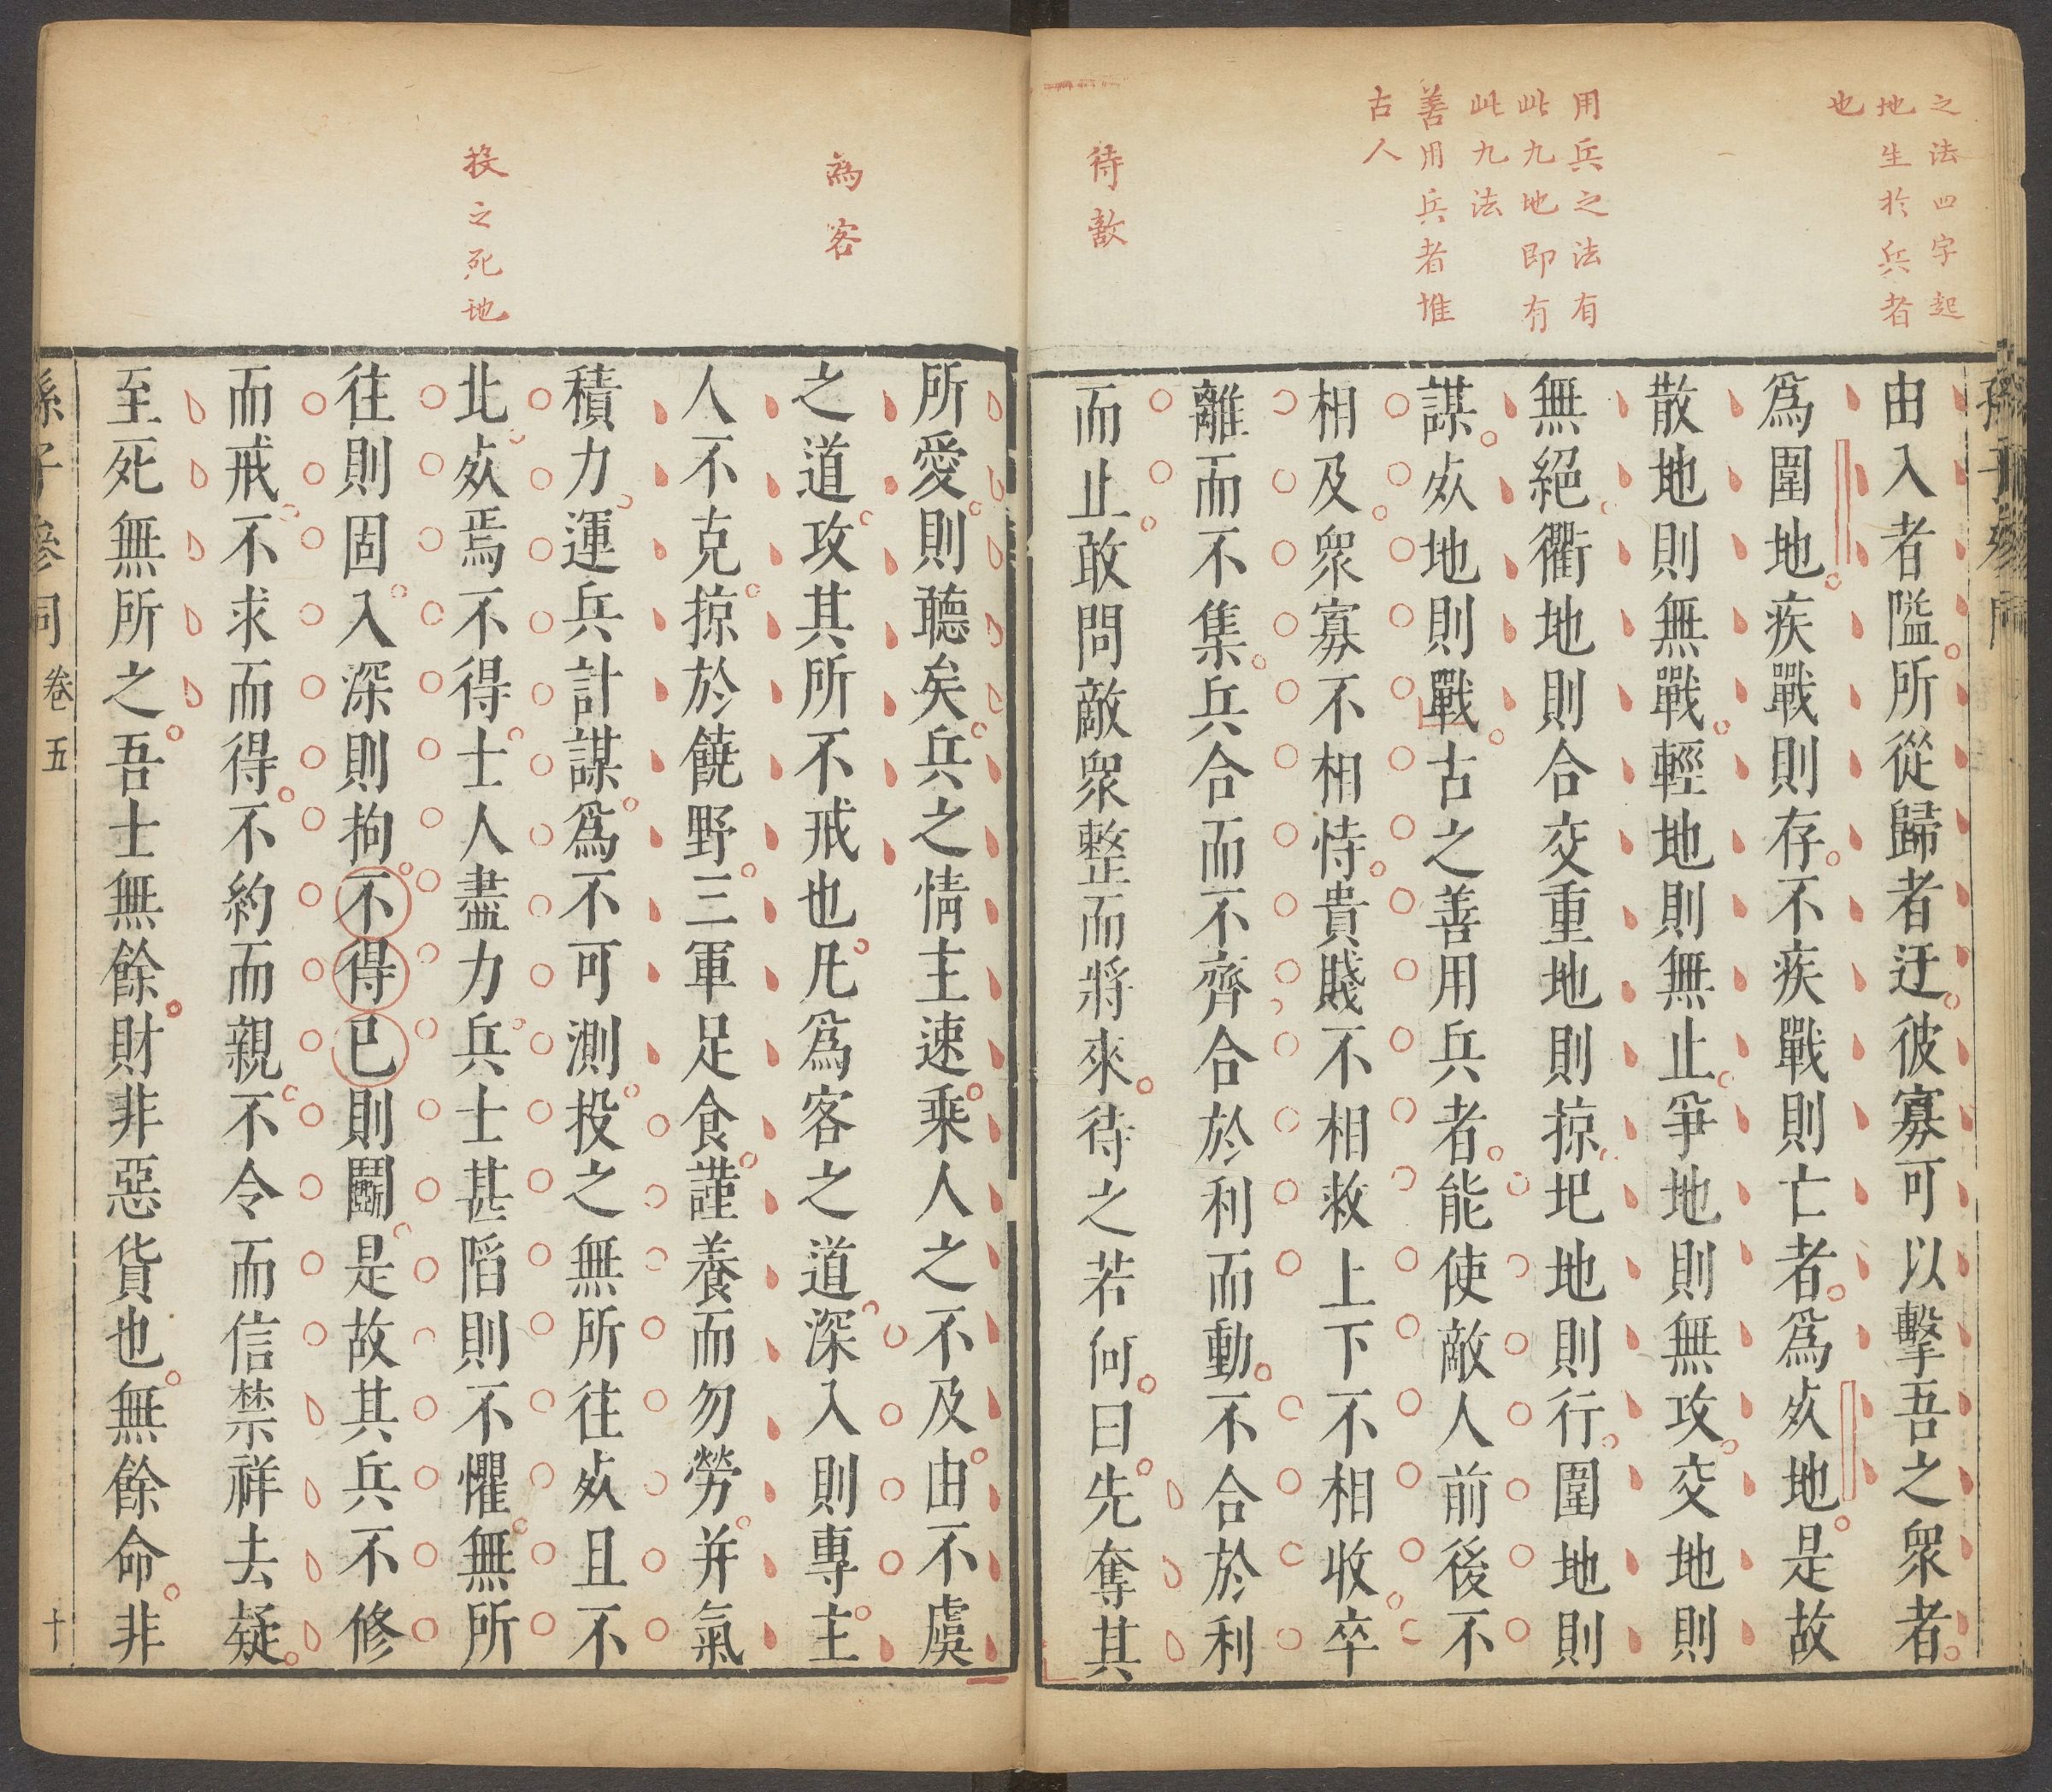 之法四字起
地生於兵者
也
用兵之法有
此九地即有
此九法
善用兵者惟
古人
待敵
由入者隘所從歸者迂彼寡可以擊吾之衆者
爲圍地疾戰則存不疾戰則亡者爲㱥地是故
散地則無戰輕地則無止爭地則無攻交地則
無絕衢地則合交重地則掠圯地則行圍地則
謀㱥地則戰古之善用兵者能使敵人前後不
相及衆寡不相恃貴賤不相救上下不相收卒
離而不集兵合而不齊合於利而動不合於利
而止敢問敵衆整而將來待之若何曰先奪其
為客
投之死地
所愛則聽矣兵之情主速乘人之不及由不虞
之道攻其所不戒也凡爲客之道深入則專主
人不克掠於饒野三軍足食謹養而勿勞并氣
積力運兵計謀爲不可測投之無所往㱥且不
北㱥焉不得士人盡力兵士甚陷則不懼無所
往則固入深則拘不得已則鬭是故其兵不修
而戒不求而得不約而親不令而信禁祥去疑
至死無所之吾士無餘財非惡貨也無餘命非
孫子參同 卷五 十